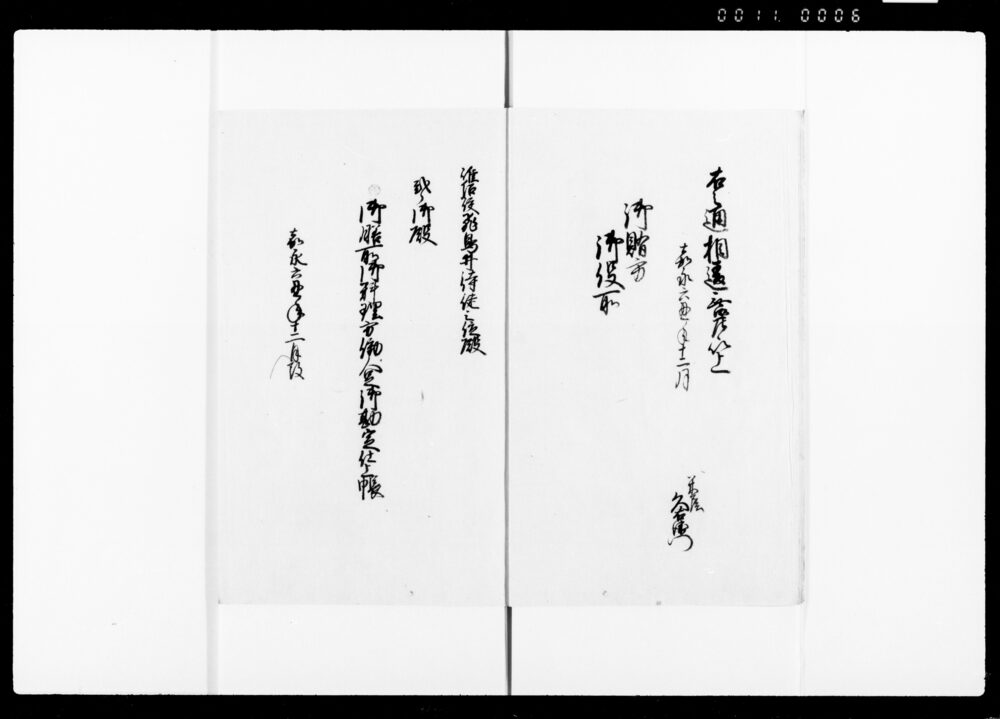 0011. 0006
右之通相違無御座候以上
嘉永六丑年十二月
久右衛門
御賄方
御役所
飛鳥井侍従三位殿
御殿
御賄所御料理方働人足御勘定仕上帳
嘉永六丑年十二月改